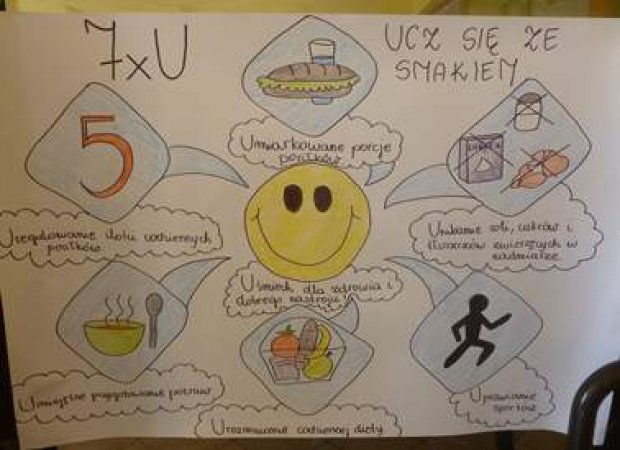 7xU
UCZ SIĘ ZE
SMAKIEM
Umiarkowane porcje
posiłków
5
Uregulowanie ilości codziennych
posiłków
Unikanie soli, cukrów i
tłuszczów zwierzęcych w
nadmiarze
Uśmiech dla zdrowia i
dobrego nastroju!
Umiejętne przygotowanie potraw
Urozmaicenie codziennej diety
Uprawianie
sportów